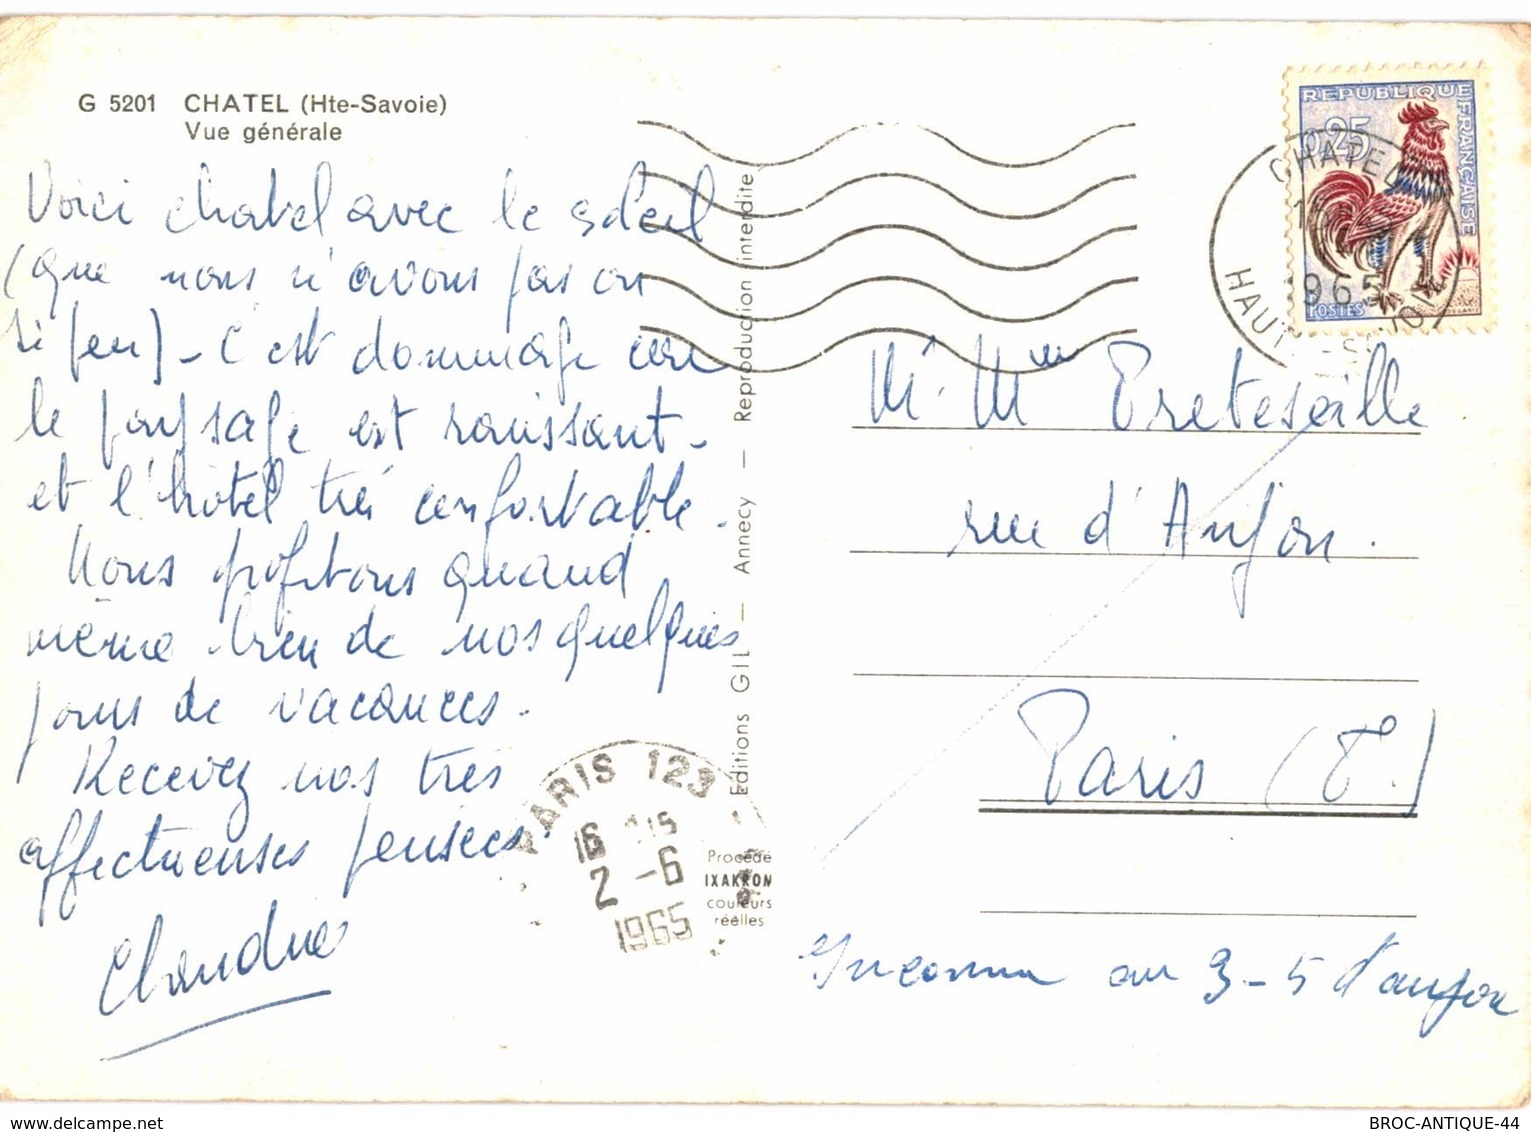 G 5201 CHATEL (Hte-Savoie)
Vue générale
Voici chatel avec le soleil
(que nous n'avons pas ou
si peu) - C'est dommage car
le paysage est ravissant -
et l'hôtel très confortable.
Nous profitons quand
même bien de nos quelques
jours de vacances.
Recevez nos très
affectueuses pensées.
Claudine
Editions GIL — Annecy — Reproduction interdite
Procédé
IXAKRON
couleurs
réelles
PARIS 123
16 15
2 -6
1965
REPUBLIQUE
FRANÇAISE
0,25
POSTES
CHATEL
965
HAUTE-SAVOIE
Mr. Mme Preteseille
rue d'Anjou.
Paris
Inconnu au 3-5 d'anjou
delcampe.net
BROC-ANTIQUE-44